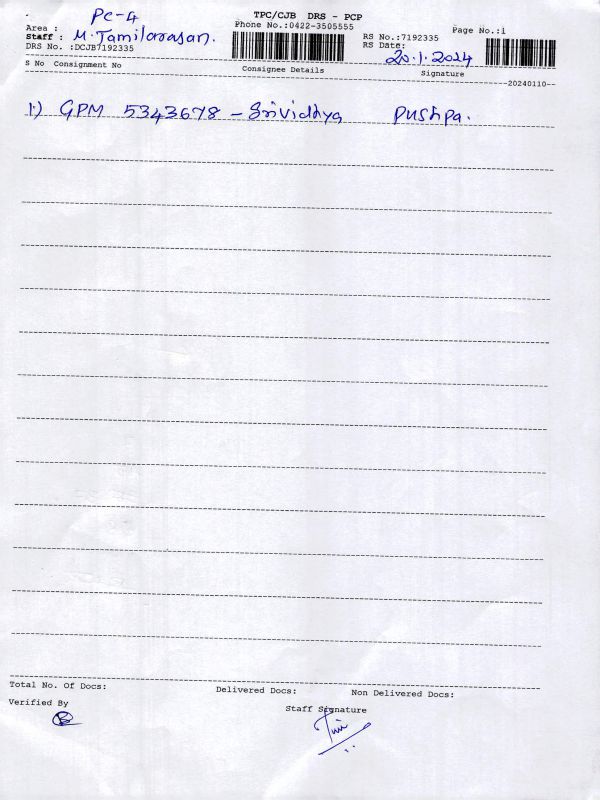 PC-4
TPC/CJB DRS - PCP
Phone No.:0422-3505555
Page No.:1
Area :
Staff : M.Tamilarasan.
RS No.:7192335
DRS No. :DCJB7192335
RS Date: 20.1.2024
S No Consignment No Consignee Details Signature
--20240110--
1.) GPM 5343678 - Srividhya Pushpa.
Total No. Of Docs: Delivered Docs: Non Delivered Docs:
Verified By
Staff Signature